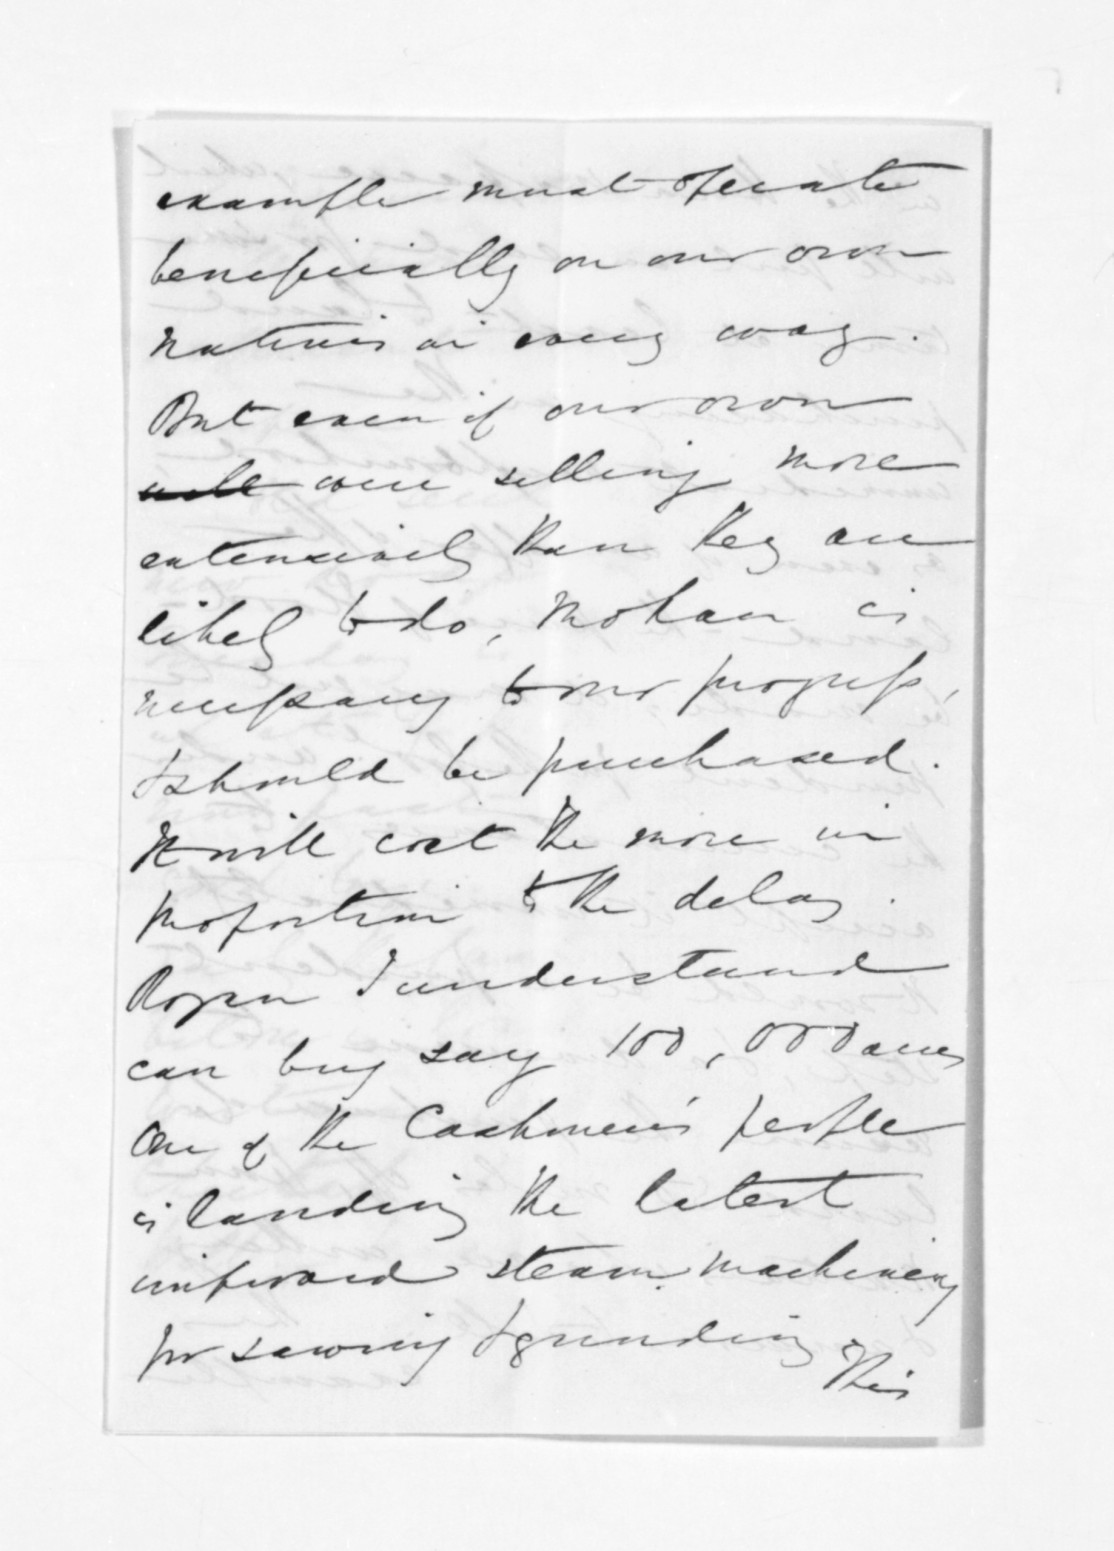 example must operate
beneficially on our own
natives in every way.
But even if our own
will were selling more
extensively than they are
likely to do, Mokau is
necessary to our progress,
& should be purchased.
It will cost the more in
proportion to the delay.
Rogan I understand
can buy say 100,000 acres
One of the Cashmere's people
is landing the latest
improved steam machinery
for sawing & grinding
This